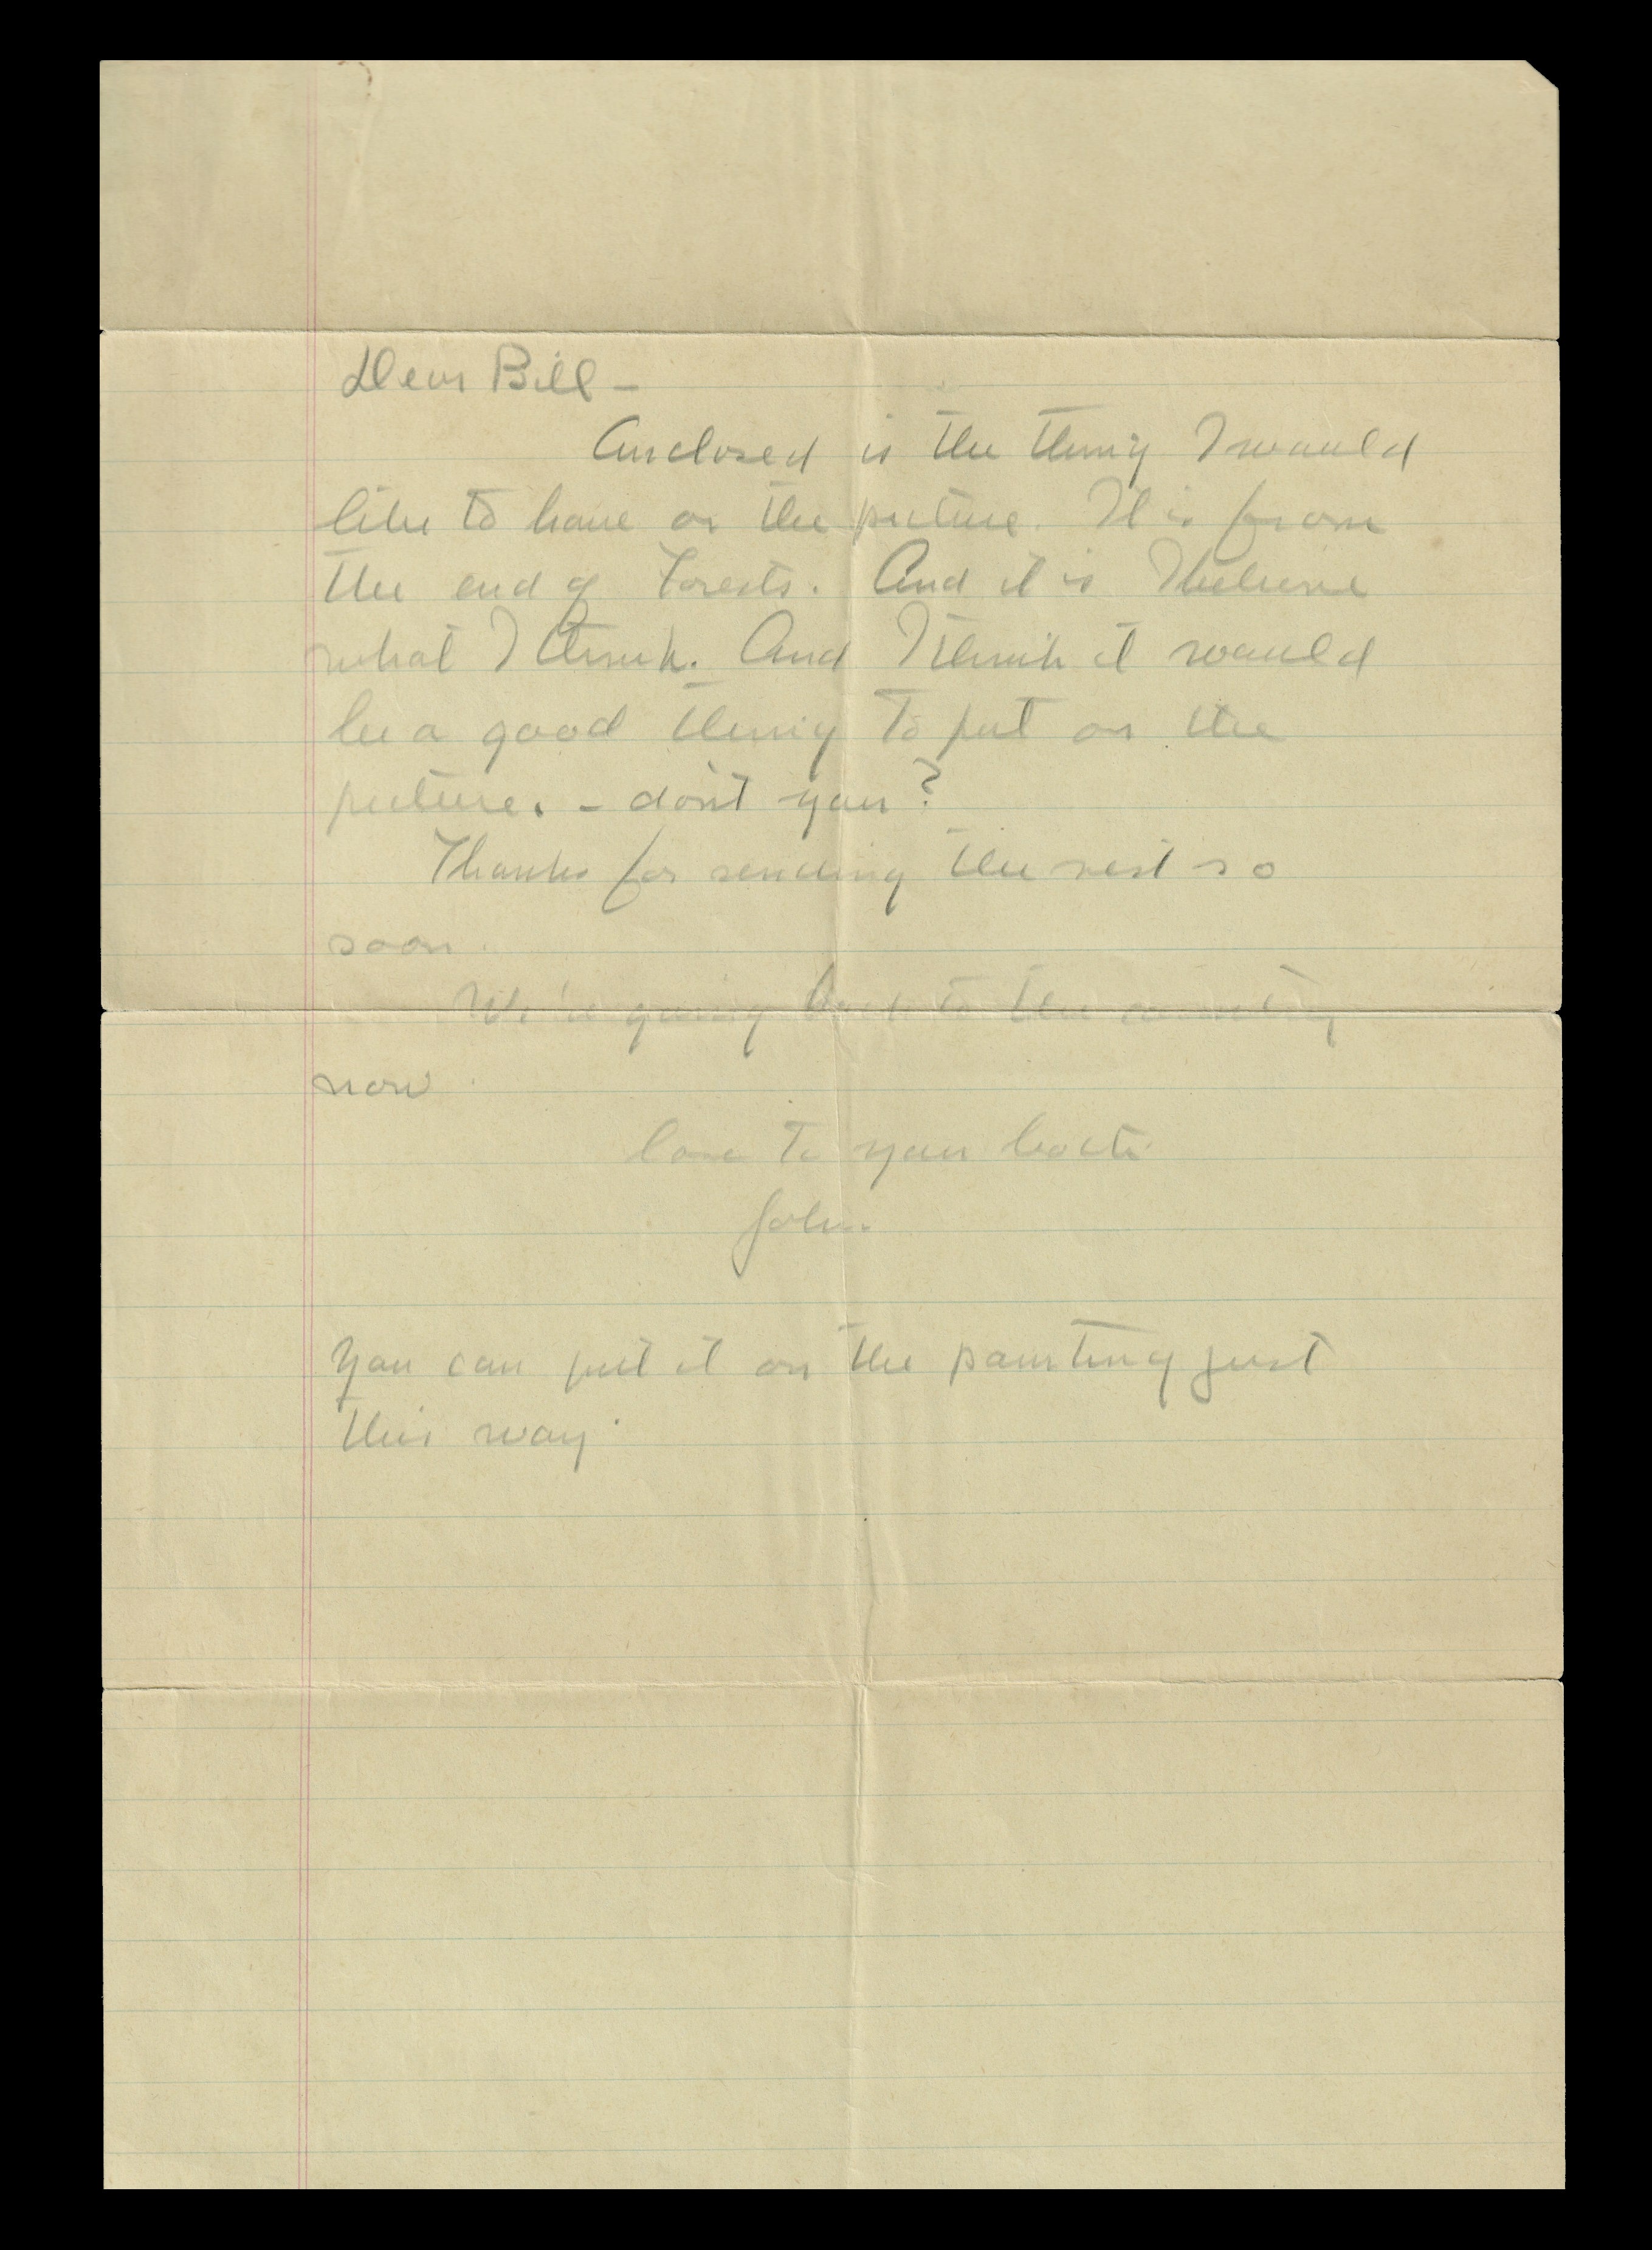 Dear Bill –
Enclosed is the thing I would
like to have on the picture. It is from
the end of Forests. And it is I believe
what I think. And I think it would
be a good thing to put on the
picture. – don't you?
Thanks for sending the rest so
soon.
We're going back to the country
now.
love to you both
John
You can put it on the painting just
this way.